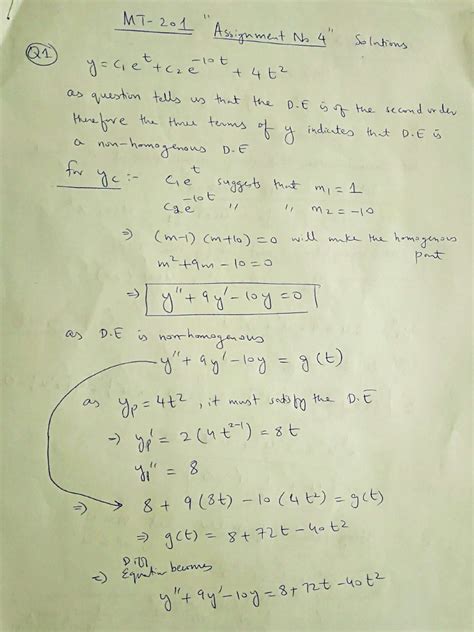 MT-201 "Assignment No 4" Solutions
Q1
y = c₁e^t + c₂e^-10t + 4t²
as question tells us that the D.E is of the second order
therefore the three terms of y indicates that D.E is
a non-homogenous D.E
for y_c :- c₁e^t suggests that m₁ = 1
c₂e^-10t " " m₂ = -10
⇒ (m-1) (m+10) = 0 will make the homogenous
part
m² + 9m - 10 = 0
⇒ y'' + 9y' - 10y = 0
as D.E is non-homogenous
y'' + 9y' - 10y = g(t)
as y_p = 4t², it must satisfy the D.E
→ y_p' = 2(4t^2-1) = 8t
y_p'' = 8
⇒ 8 + 9(8t) - 10(4t²) = g(t)
⇒ g(t) = 8 + 72t - 40t²
⇒ Diff Equation becomes
y'' + 9y' - 10y = 8 + 72t - 40t²